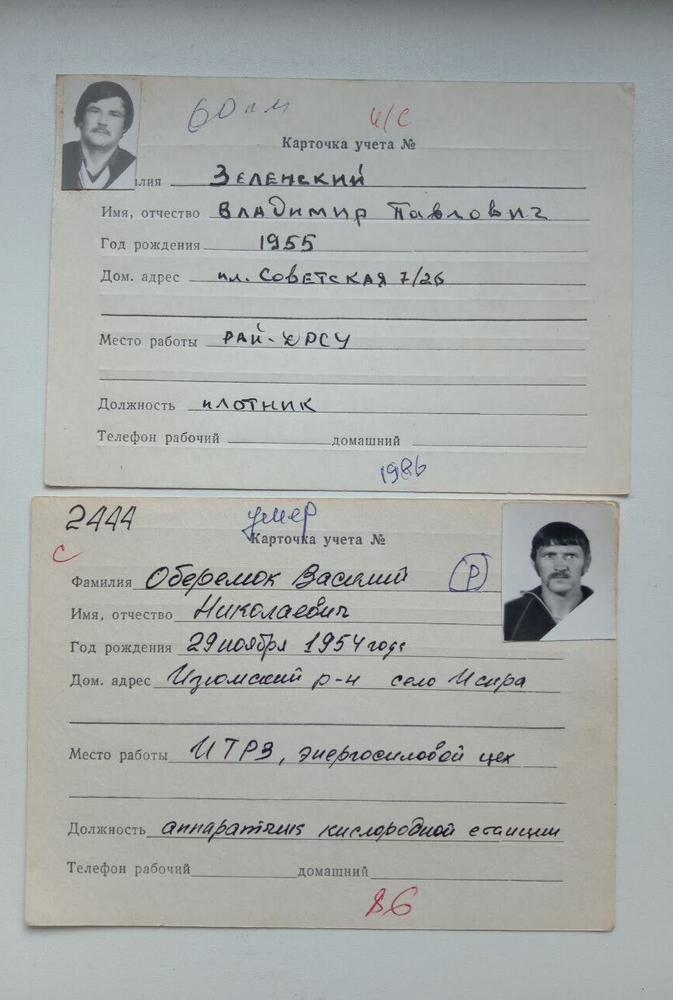 60 пм
и/с
Карточка учета №
илия Зеленский
Имя, отчество Владимир Павлович
Год рождения 1955
Дом. адрес пл. Советская 7/26
Место работы РАЙ-ДРСУ
Должность плотник
Телефон рабочий домашний
1986
2444 умер
Карточка учета №
с
Фамилия Оберемок Василий Р
Имя, отчество Николаевич
Год рождения 29 ноября 1954 года
Дом. адрес Изюмский р-н село Искра
Место работы ИТРЗ, энергосиловой цех
Должность аппаратчик кислородной станции
Телефон рабочий домашний
86